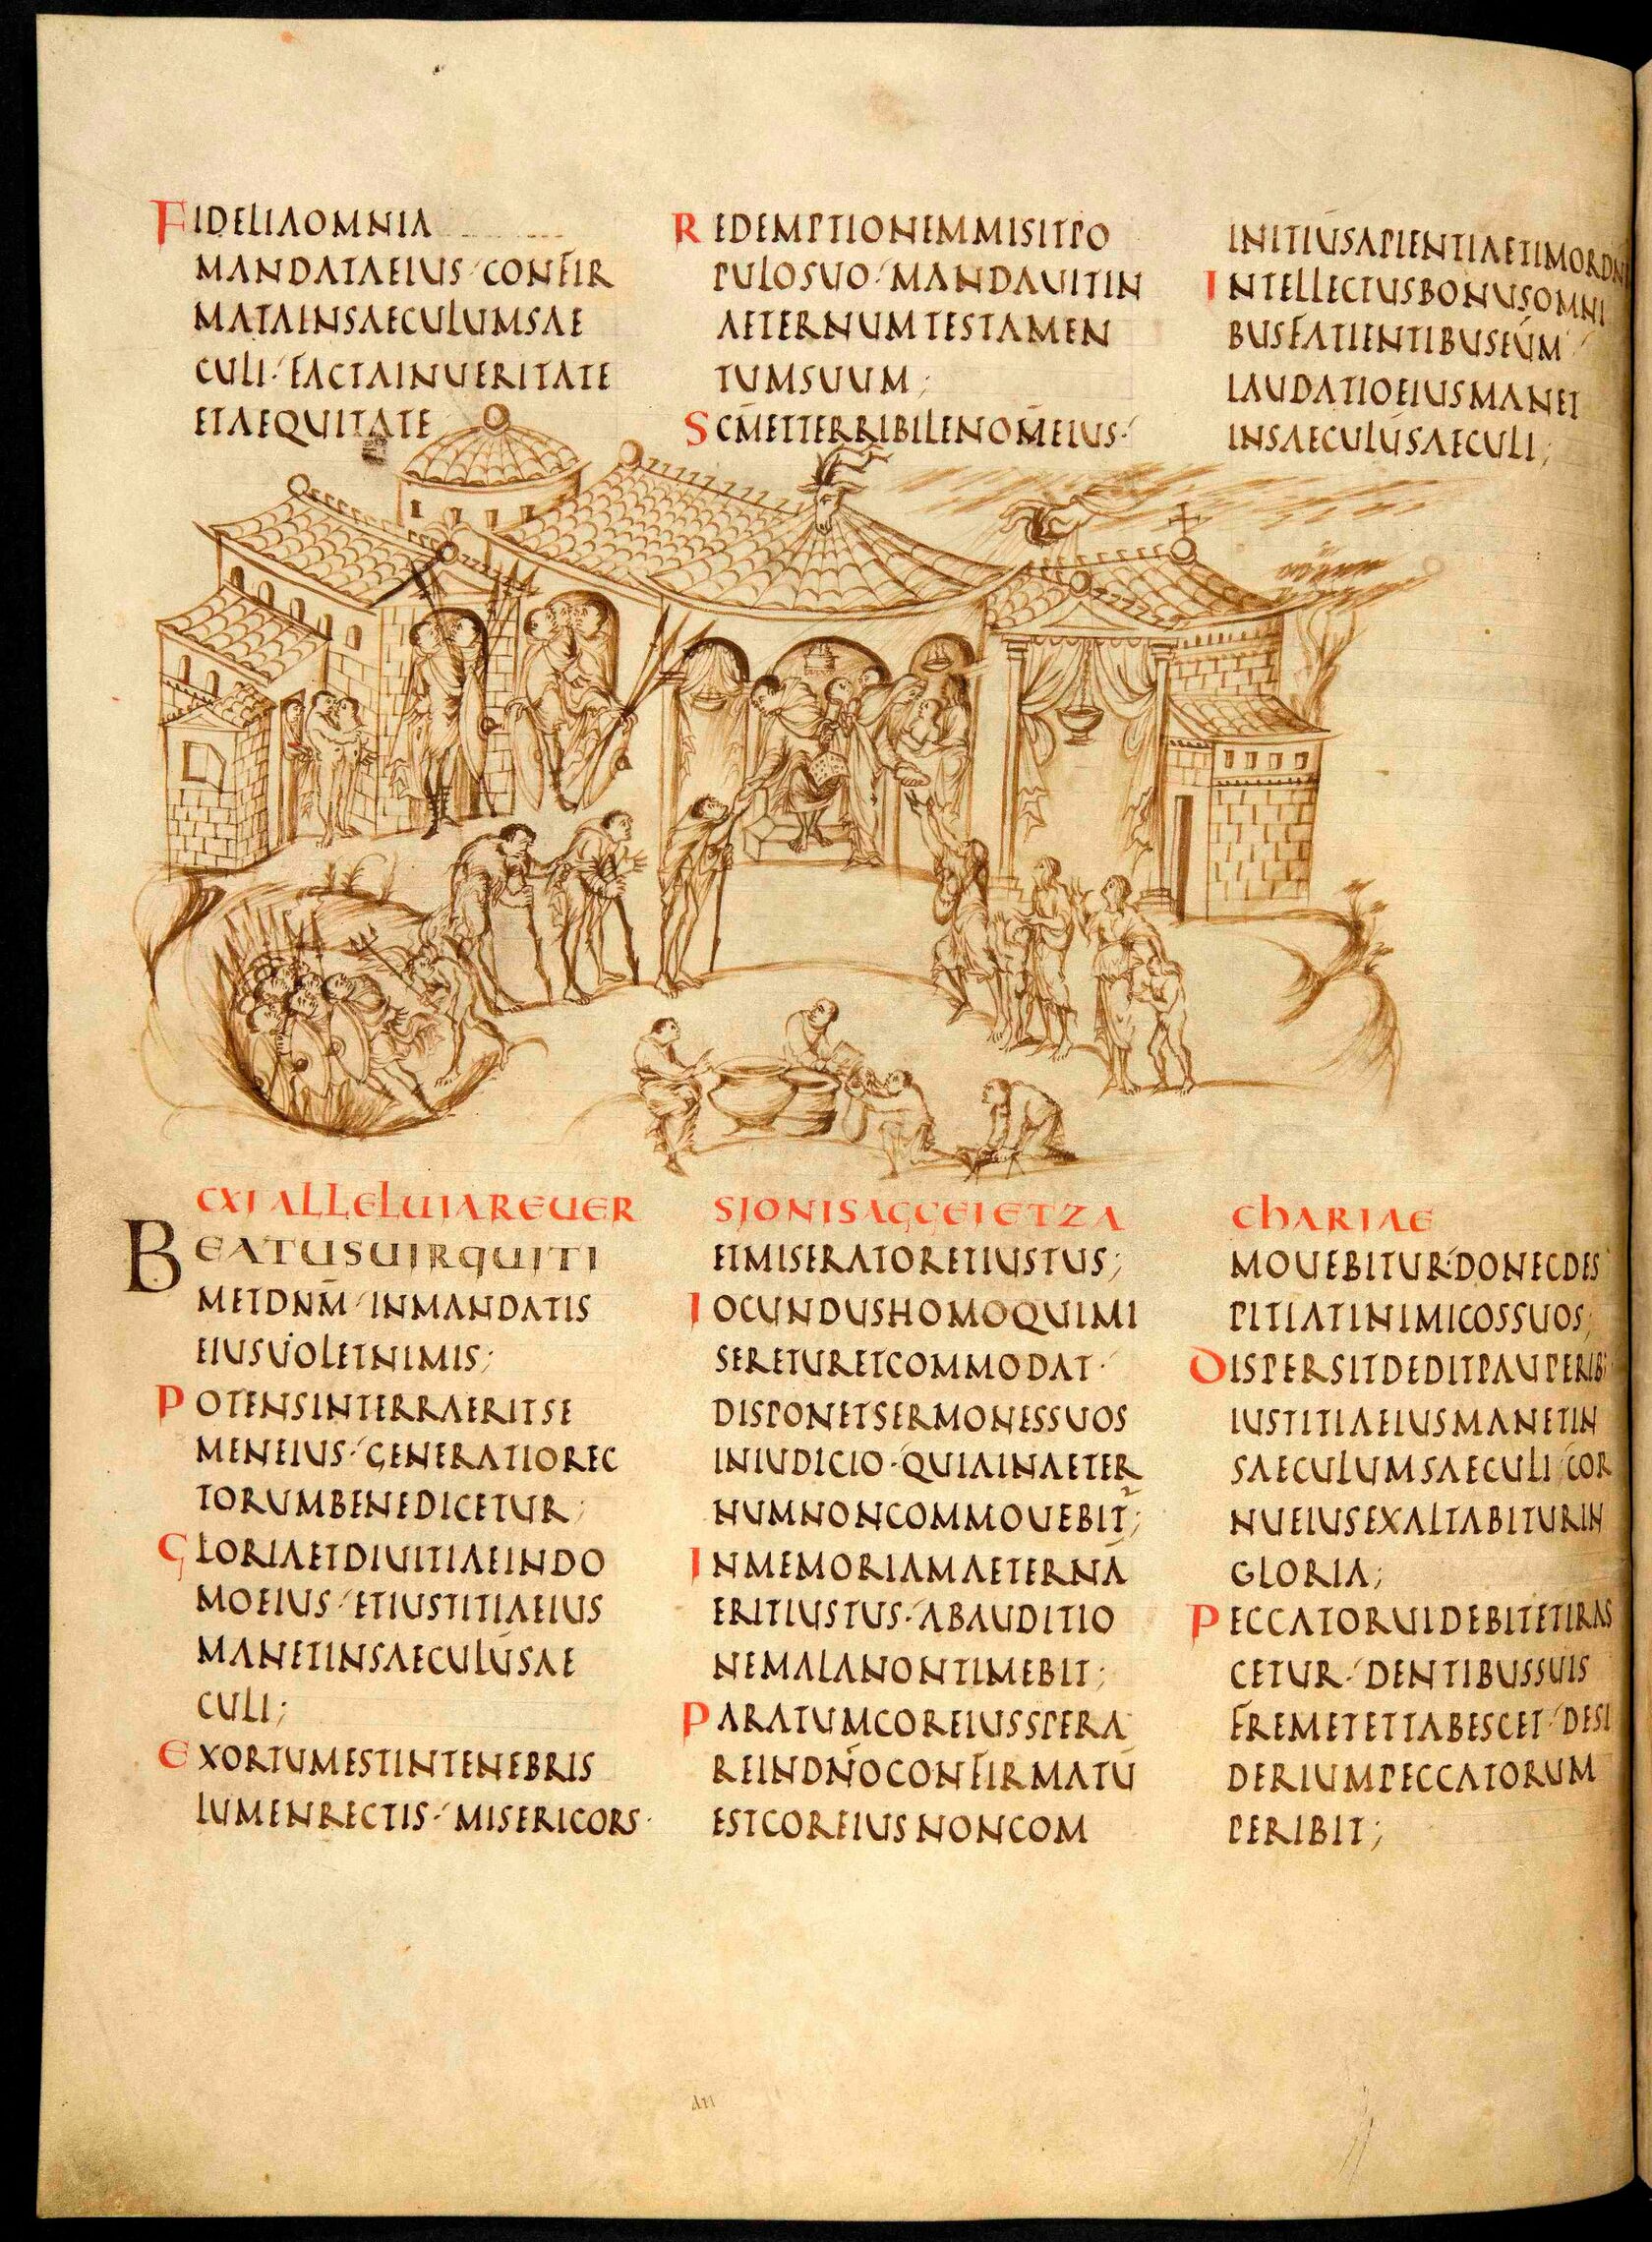 FIDELIAOMNIA
MANDATAEIUS·CONFIR
MATAINSAECULUMSAE
CULI·FACTAINUERITATE
ETAEQUITATE
REDEMPTIONEMMISITPO
PULOSUO·MANDAUITIN
AETERNUMTESTAMEN
TUMSUUM;
SCM̄ETTERRIBILENOM̄EIUS·
INITIŪSAPIENTIAETIMORDNI
INTELLECTUSBONUSOMNI
BUSFATIENTIBUSEŪM·
LAUDATIOEIUSMANET
INSAECULŪSAECULI;
CXI ALLELUIAREUER
SIONISAGGEIETZA
CHARIAE
BEATUSUIRQUITI
METDNM̄·INMANDATIS
EIUSUOLETNIMIS;
POTENSINTERRAERITSE
MENEIUS·GENERATIOREC
TORUMBENEDICETUR;
GLORIAETDIUITIAEINDO
MOEIUS·ETIUSTITIAEIUS
MANETINSAECULŪSAE
CULI;
EXORTUMESTINTENEBRIS
LUMENRECTIS·MISERICORS·
ETMISERATORETIUSTUS;
IOCUNDUSHOMOQUIMI
SERETURETCOMMODAT·
DISPONETSERMONESSUOS
INIUDICIO·QUIAINAETER
NUMNONCOMMOUEBIT²;
INMEMORIAMAETERNĀ
ERITIUSTUS·ABAUDITIO
NEMALANONTIMEBIT;
PARATUMCOREIUSSPERA
REINDN̄OCONFIRMATŪ
ESTCOREIUSNONCOM
MOUEBITUR·DONECDES
PITIATINIMICOSSUOS;
DISPERSITDEDITPAUPERIB·
IUSTITIAEIUSMANETIN
SAECULUMSAECULI·COR
NUEIUSEXALTABITURIN
GLORIA;
PECCATORUIDEBITETIRAS
CETUR·DENTIBUSSUIS
FREMETETTABESCET·DESI
DERIUMPECCATORUM
PERIBIT;